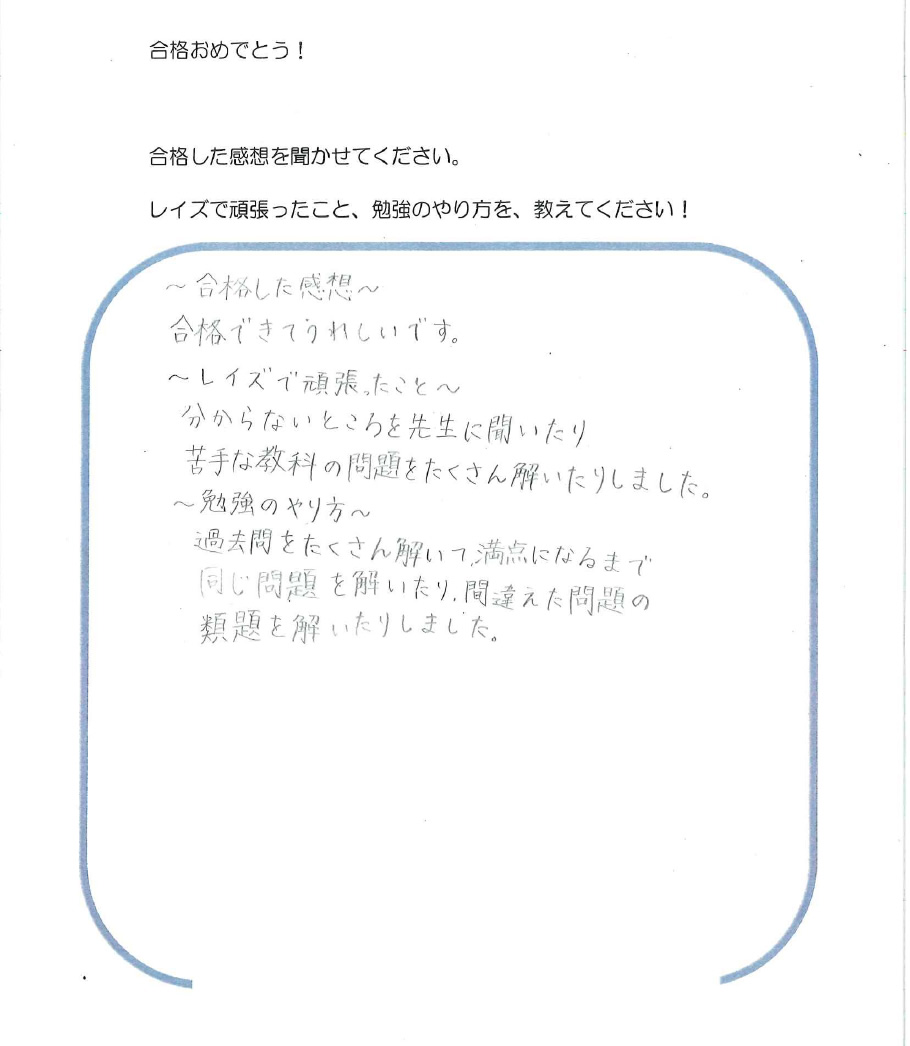 合格おめでとう！
合格した感想を聞かせてください。
レイズで頑張ったこと、勉強のやり方を、教えてください！
～合格した感想～
合格できてうれしいです。
～レイズで頑張ったこと～
分からないところを先生に聞いたり
苦手な教科の問題をたくさん解いたりしました。
～勉強のやり方～
過去問をたくさん解いて、満点になるまで
同じ問題を解いたり、間違えた問題の
類題を解いたりしました。